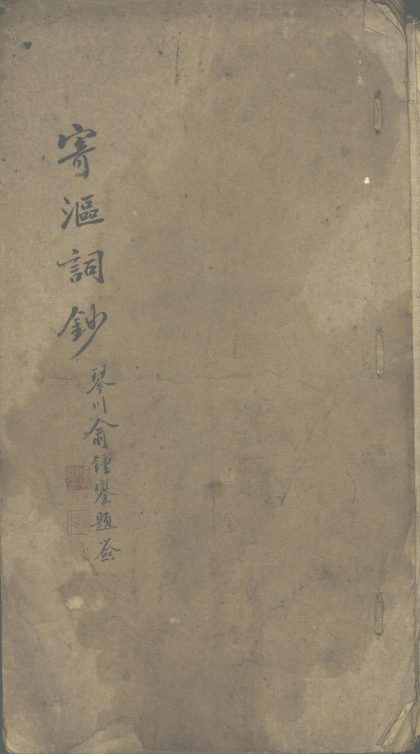 寄漚詞鈔
琴川俞鍾鑾題簽